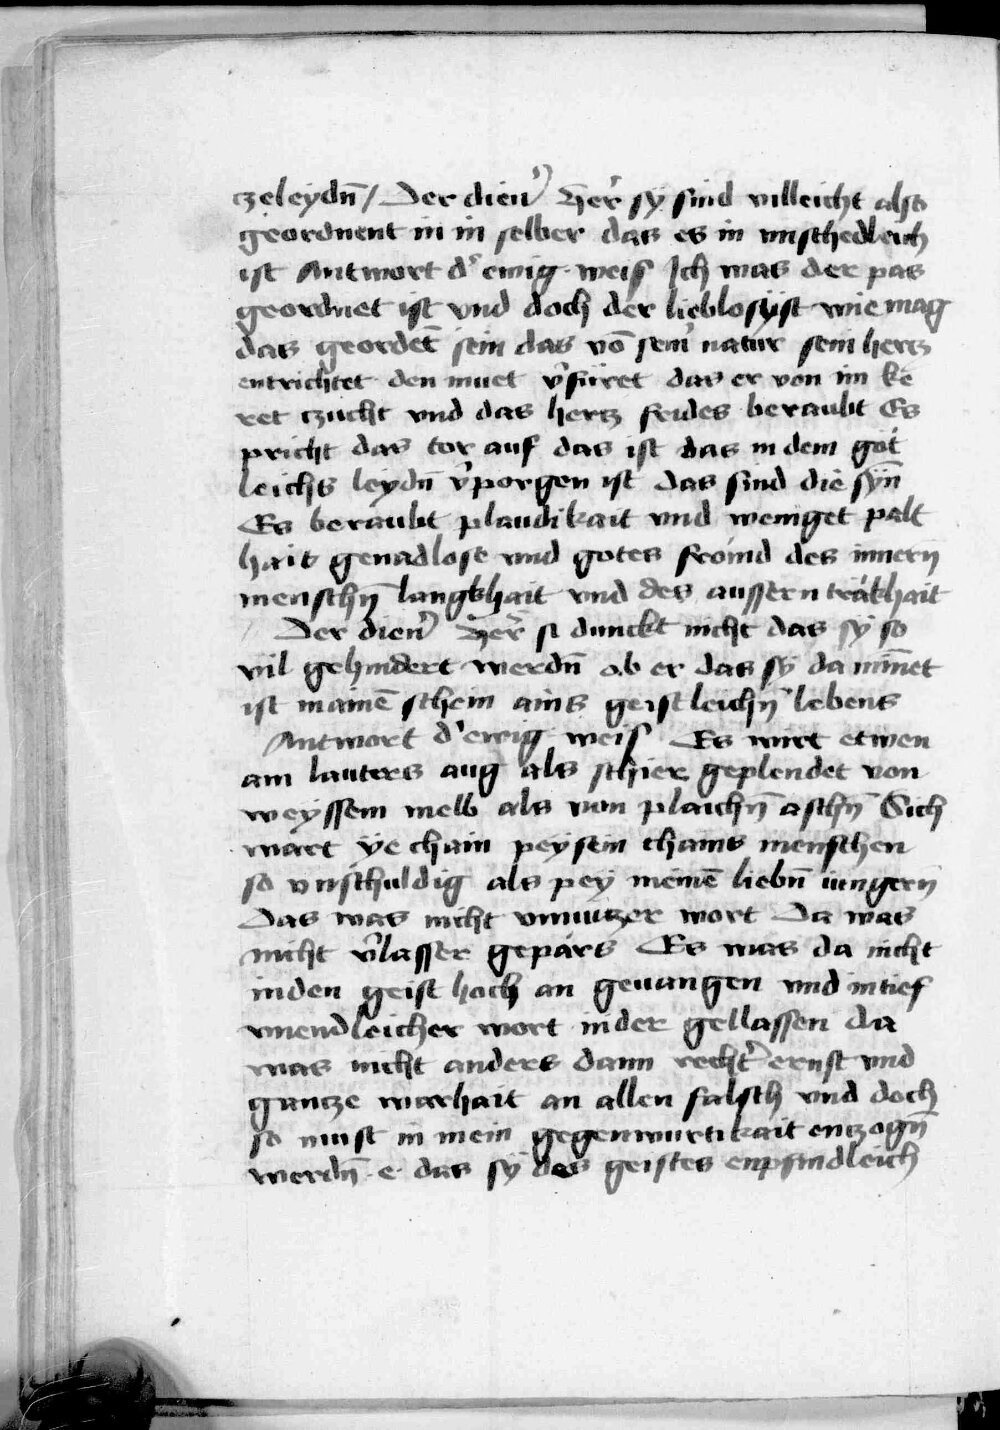 czeleydn̄ / Der dien᷑ Her᷑ sy sind villeicht also
geordnent in in selber das es in vnschedleich
ist Antwort d᷑ ewig weis Ich was der pas
geordnet ist vnd doch der lieblosijst wie mag
das geordēt sein das vō sein᷑ natur sein hertz
entrichtet den muet v᷑füret das er von im ke
ret czucht vnd das hertz frides beraubt Es
pricht das tor auf das ist das in dem göt
leichs leydn̄ v᷑porgen ist Das sind die syn̄
Es beraubt plaudikait vnd weniget palt
hait genadlose vnd gotes fröind des innern̄
menschn̄ langkhait vnd des aussern träkhait
Der dien᷑ Her᷑ si dunckt nicht das sy so
vil gehindert werdn̄ ob er das sy da mīnet
ist in ainē schein ains geistleichn̄ lebens
Antwort d᷑ ewig weis Es wirt etwen
ain lauters aug als schier geplendet von
weyssem melb als von plaichn̄ aschn̄ Sich
wart ye chain peysein chains menschen
so vnschuldig als pey meinē liebn̄ iungern̄
Das was nicht vnnutzer wort Da was
nicht v᷑lasser gepärs Es was da nicht
in den geist hoch an geuangen vnd in tief
vnendleicher wort in der gellassen da
was nicht anders dann recht᷑ ernst vnd
gantze warhait an allen falsch vnd doch
so must in mein gegenwurtikait enczogn̄
werdn̄ e das sy des geistes enpfindleich